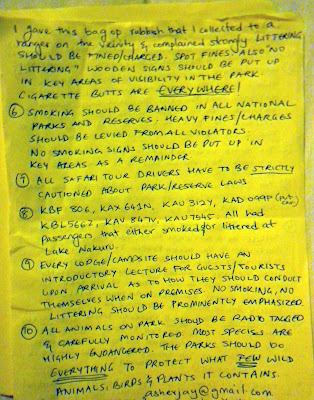 I gave this bag of rubbish that I collected to a
ranger on the vicinity & complained strongly LITTERING
SHOULD BE FINED/CHARGED. SPOT FINES. ALSO "NO
LITTERING" WOODEN SIGNS SHOULD BE PUT UP
IN KEY AREAS OF VISIBILITY IN THE PARK.
CIGARETTE BUTTS ARE EVERYWHERE!
⑥ SMOKING SHOULD BE BANNED IN ALL NATIONAL
PARKS AND RESERVES. HEAVY FINES/CHARGES
SHOULD BE LEVIED FROM ALL VIOLATORS.
NO SMOKING SIGNS SHOULD BE PUT UP IN
KEY AREAS AS A REMAINDER
⑦ ALL SAFARI TOUR DRIVERS HAVE TO BE STRICTLY
CAUTIONED ABOUT PARK/RESERVE LAWS
⑧ KBF 806, KAX 642N, KAU 312Y, KAD 099P
KBL 566Z, KAV 847V, KAU 754S. All had
passengers that either smoked or littered at
Lake Nakuru.
⑨ EVERY LODGE/CAMPSITE SHOULD HAVE AN
INTRODUCTORY LECTURE FOR GUESTS/TOURISTS
UPON ARRIVAL AS TO HOW THEY SHOULD CONDUCT
THEMSELVES WHEN ON PREMISES. NO SMOKING, NO
LITTERING SHOULD BE PROMINENTLY EMPHASIZED.
⑩ ALL ANIMALS ON PARK SHOUD BE RADIO TAGGED
& CAREFULLY MONITORED. MOST SPECIES ARE
HIGHLY ENDANGERED. THE PARKS SHOULD DO
EVERYTHING TO PROTECT WHAT FEW WILD
ANIMALS, BIRDS & PLANTS IT CONTAINS.
asherjay@gmail.com